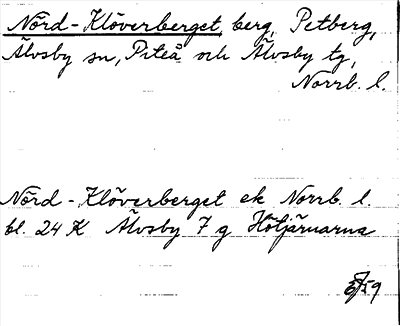 Nörd-Klöverberget, berg, Petberg,
Älvsby sn, Piteå och Älvsby tg,
Norrb. l.
Nörd-Klöverberget ek Norrb. l.
bl. 24 K Älvsby 7 g Höljärnarna